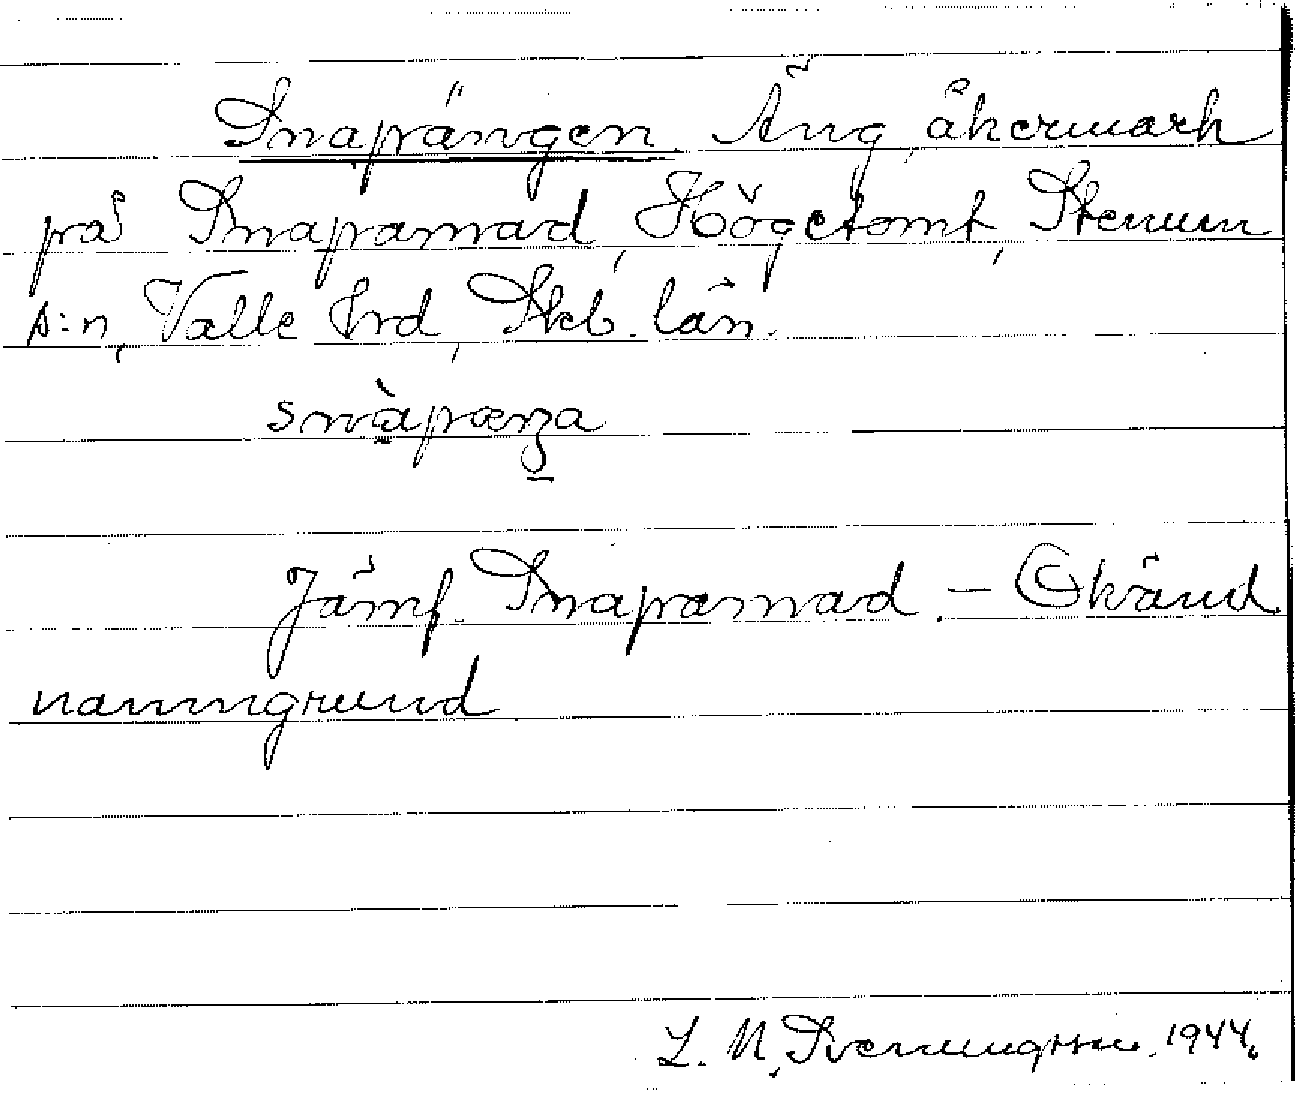 Snapängen. Äng, åkermark
på Snapamad, Högetomt, Stenum
s:n, Valle hrd, Skb. län.
Jämf. Snapamad. - Okänd
namngrund
L. N. Svenungsson. 1944.